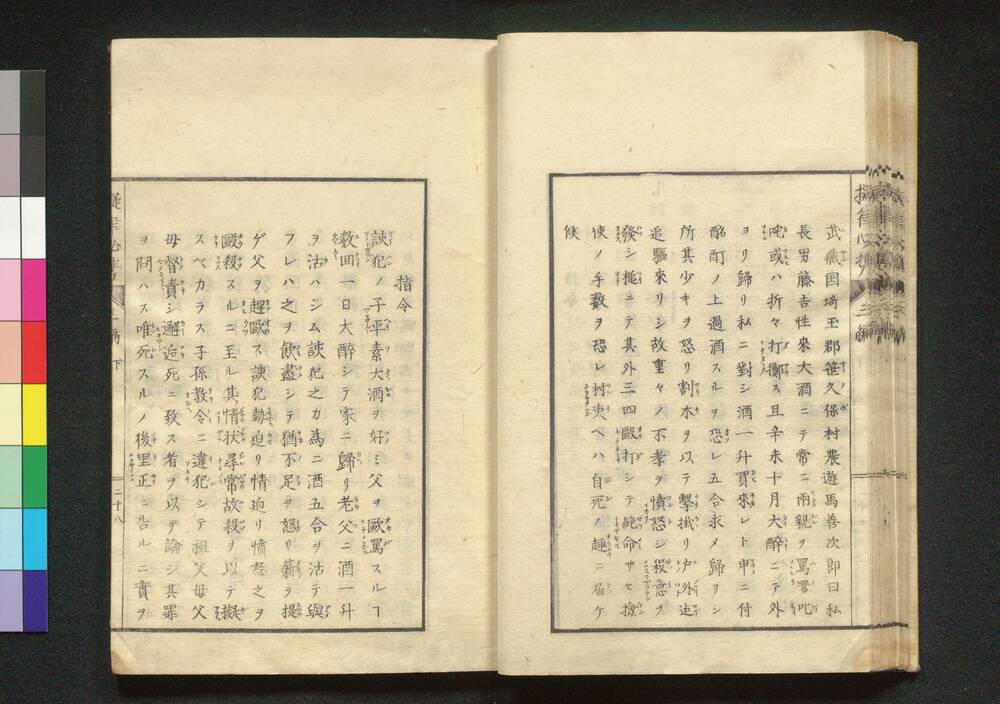 武蔵国埼玉郡笹久保村農遊馬善次郎曰私
長男藤吉性來大酒ニテ常ニ兩親ヲ罵詈叱
咤或ハ折々打擲ス且辛未十月大醉ニテ外
ヨリ歸リ私ニ對シ酒一升買來レト申ニ付
酩酊ノ上過酒スルヲ恐レ五合求メ歸リシ
所其少キヲ怒リ割木ヲ以テ撃掛リ戸外迄
追驅來リシ故重々ノ不孝ヲ憤怒シ殺意ヲ
發シ棰ニテ其外三四毆打シテ絶命サセ撿
使ノ手数ヲ恐レ村吏ヘハ自死ノ趣ニ届ケ
候
指令
該犯ノ子平素大酒ヲ好ミ父ヲ毆罵スルヿ
数回一日大醉シテ家ニ歸リ老父ニ酒一升
ヲ沽ハシム該犯之カ為ニ酒五合ヲ沽テ與
フレハ之ヲ飲盡シテ猶不足ヲ怒リ薪ヲ提
ゲ父ヲ趕毆ス該犯勢迫リ情迫リ憤怒之ヲ
毆殺スルニ至ル其情状尋常故殺ヲ以テ擬
スベカラス子孫教令ニ違犯シテ祖父母父
母督責シ邂逅死ニ致ス者ヲ以テ論シ其罪
ヲ問ハス唯死スルノ後里正ニ告ルニ實ヲ
二十八